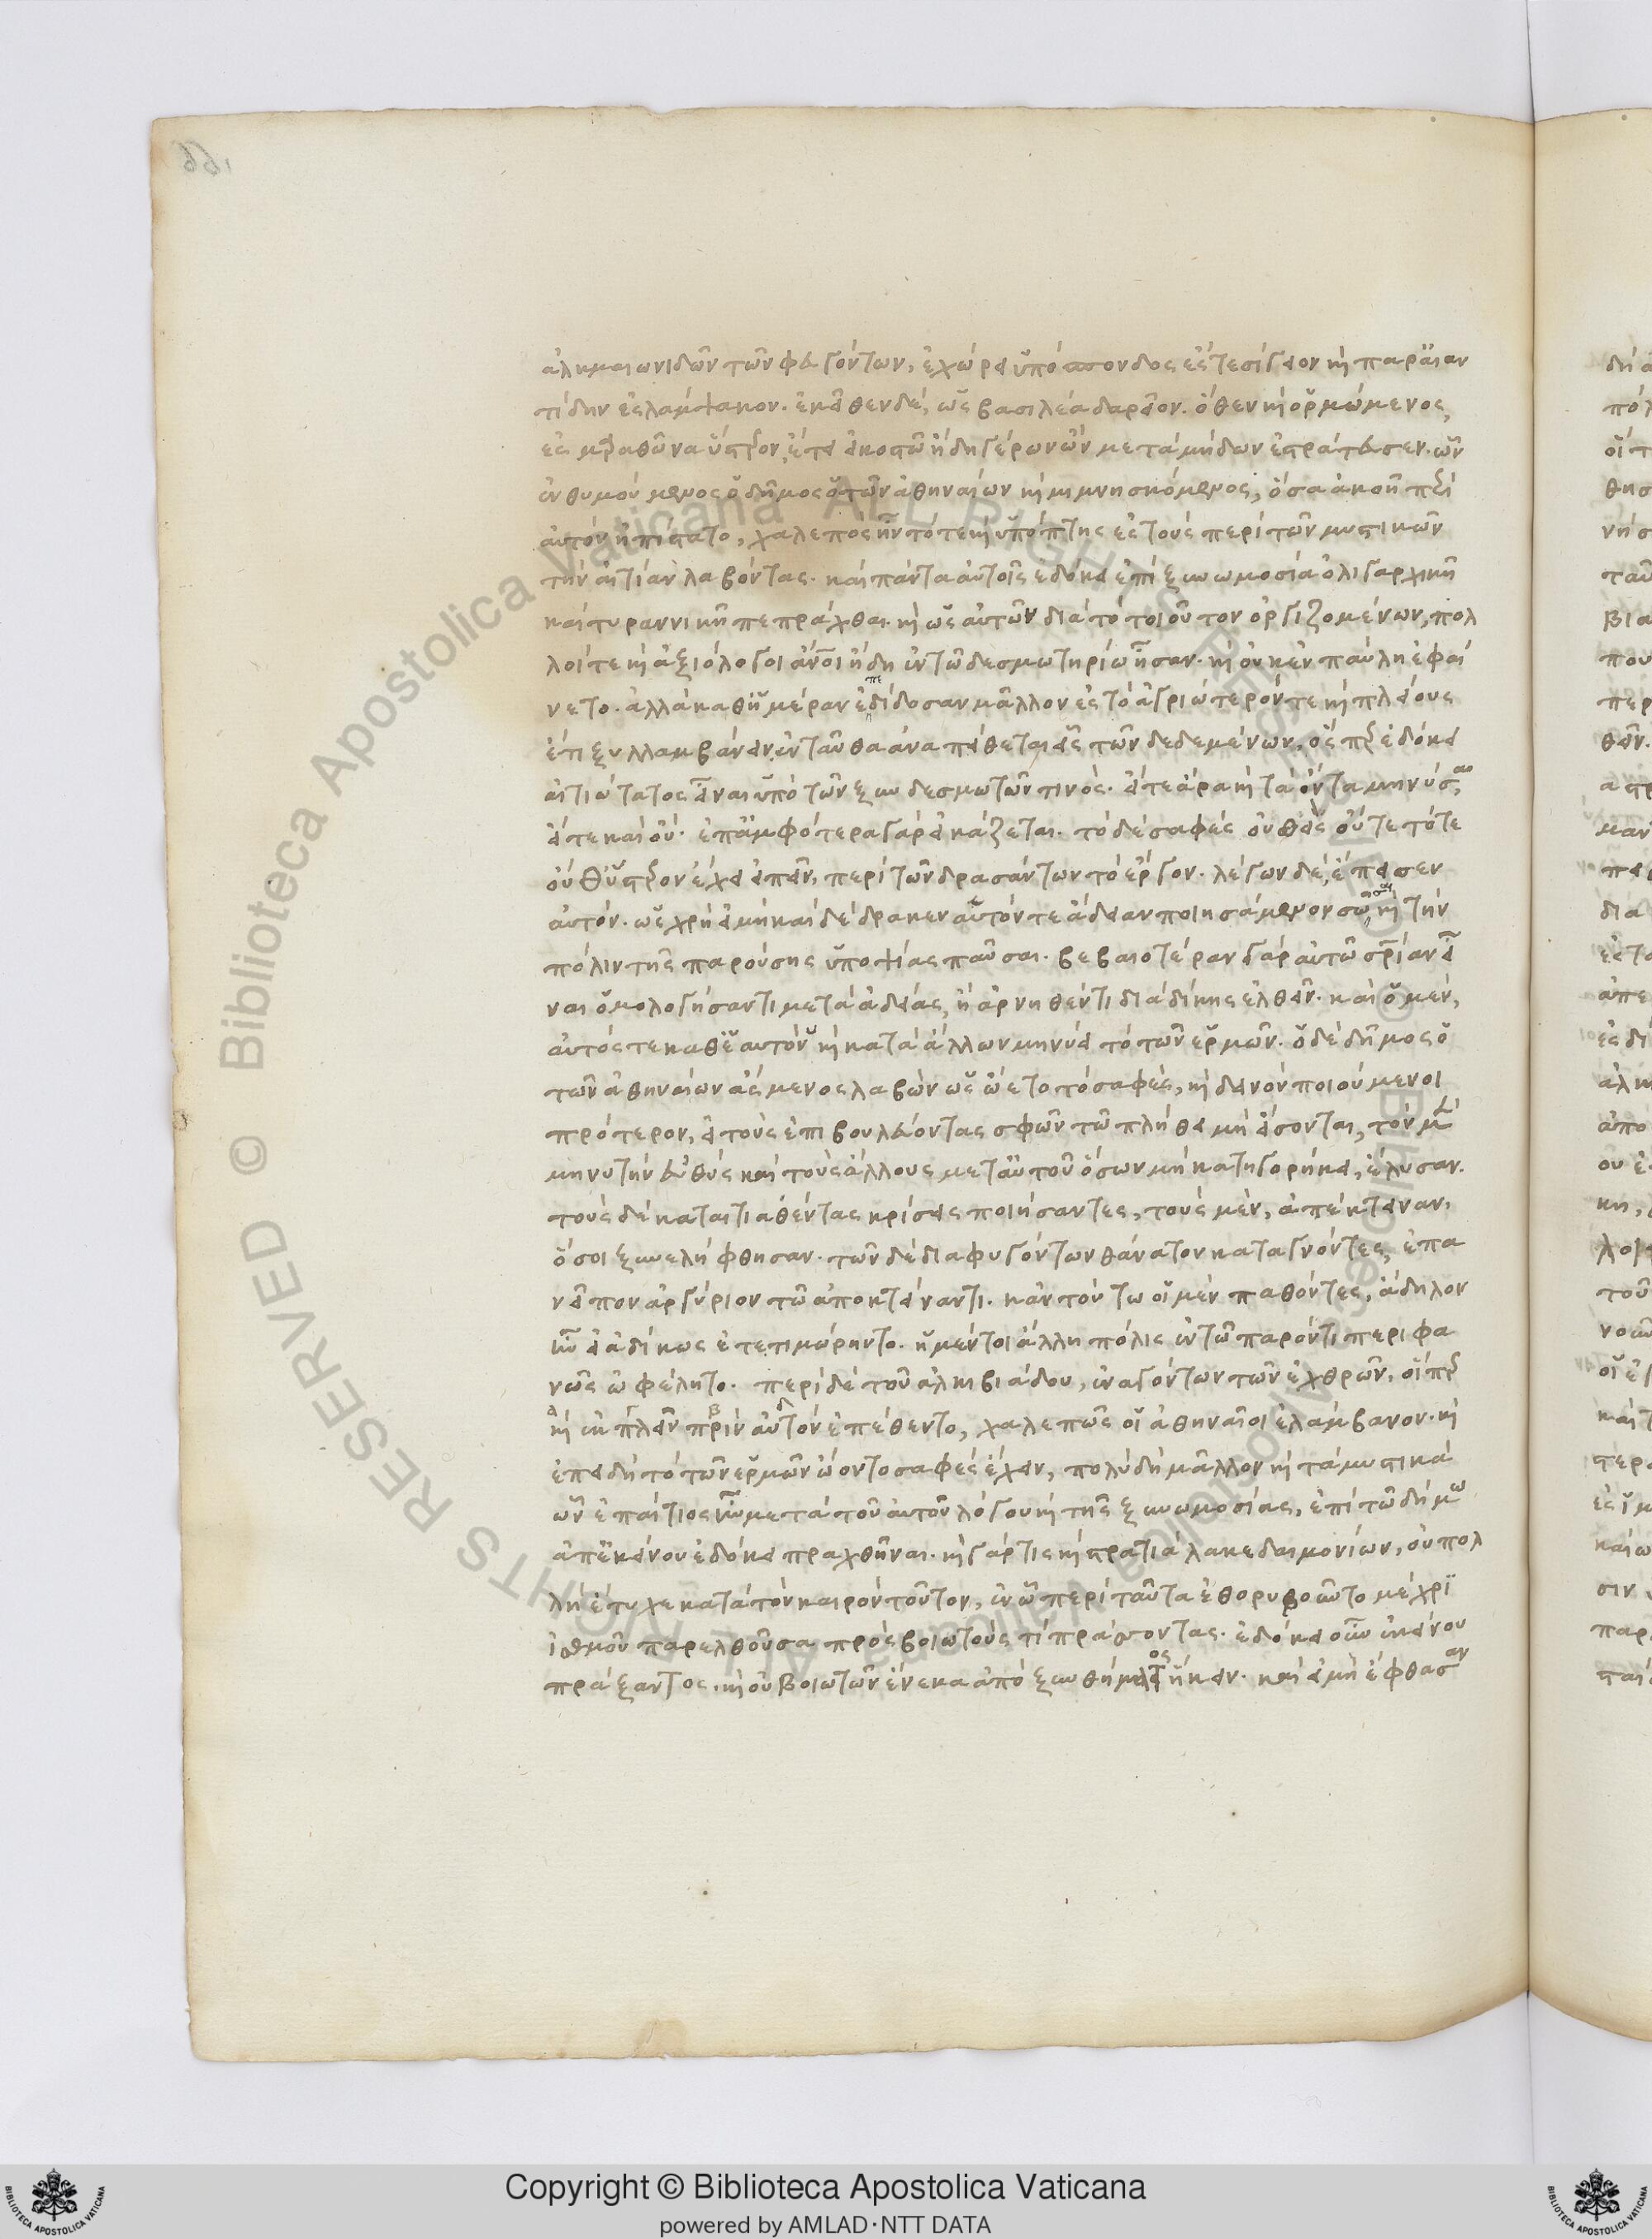 ἀλκμαιωνιδῶν τῶν φευγόντων, ἐχώρει ὑπόσπονδος ἔς τε σίγειον καὶ παρ' αἰαν
τίδην ἐς λάμψακον. ἐκεῖθεν δὲ, ὡς βασιλέα δαρεῖον. ὅθεν καὶ ὁρμώμενος,
ἐς μαραθῶνα ὕστερον, ἔτει εἰκοστῶ ἤδη γέρων ὢν μετὰ μήδων ἐστράτευσεν. ὧν
ἐνθυμούμενος ὁ δῆμος ὁ τῶν ἀθηναίων καὶ μιμνησκόμενος, ὅσα ἀκοῆ περὶ
αὐτῶν ἠπίστατο, χαλεπὸς ἦν τότε καὶ ὑπόπτης ἐς τοὺς περὶ τῶν μυστικῶν
τὴν αἰτίαν λαβόντας. καὶ πάντα αὐτοῖς ἐδόκει ἐπὶ ξυνωμοσία ὀλιγαρχικῆ
καὶ τυραννικῆ πεπράχθαι. καὶ ὡς αὐτῶν διὰ τὸ τοιοῦτον ὀργιζομένων, πολ
λοί τε καὶ ἀξιόλογοι ἄνοι ἤδη ἐν τῶ δεσμωτηρίω ἦσαν. καὶ οὐκ ἐν παύλη ἐφαί
νετο. ἀλλὰ καθ' ἡμέραν ἐπεδίδοσαν μᾶλλον ἐς τὸ ἀγριώτερόν τε καὶ πλείους
ἔτι ξυλλαμβάνειν. ἐνταῦθα ἀναπείθεται εἷς τῶν δεδεμένων, ὅσπερ ἐδόκει
αἰτιώτατος εἶναι ὑπὸ τῶν ξυνδεσμωτῶν τινὸς. εἴτε ἄρα καὶ τὰ ὄντα μηνῦσαι,
εἴτε καὶ οὔ. ἐπ' ἀμφότερα γὰρ εἰκάζεται. τὸ δὲ σαφὲς οὐθεὶς οὔτε τότε
οὔθ' ὕστερον ἔχει εἰπεῖν, περὶ τῶν δρασάντων τὸ ἔργον. λέγων δὲ, ἔπεισεν
αὐτόν. ὡς χρὴ εἰ μὴ καὶ δέδρακεν αὑτόν τε ἄδειαν ποιησάμενον σῶσαι καὶ τὴν
πόλιν τῆς παρούσης ὑποψίας παῦσαι. βεβαιοτέραν γὰρ αὐτῶ σωτηρίαν εἶ
ναι ὁμολογήσαντι μετὰ ἀδείας, ἢ ἀρνηθέντι διὰ δίκης ἐλθεῖν. καὶ ὁ μὲν,
αὐτός τε καθ' ἑαυτοῦ καὶ κατὰ ἄλλων μηνύει τὸ τῶν ἑρμῶν. ὁ δὲ δῆμος ὁ
τῶν ἀθηναίων ἄσμενος λαβὼν ὡς ὤετο τὸ σαφὲς, καὶ δεινὸν ποιούμενοι
πρότερον, εἰ τοὺς ἐπιβουλεύοντας σφῶν τῶ πλήθει μὴ εἴσονται, τὸν μὲν
μηνυτὴν εὐθὺς καὶ τοὺς ἄλλους μετ' αὐτοῦ ὅσων μὴ κατηγορήκει, ἔλυσαν.
τοὺς δὲ καταιτιαθέντας κρίσεις ποιήσαντες, τοὺς μὲν, ἀπέκτειναν,
ὅσοι ξυνελήφθησαν. τῶν δὲ διαφυγόντων θάνατον καταγνόντες, ἐπα
νεῖπον ἀργύριον τῶ ἀποκτείναντι. κἀν τούτω οἱ μὲν παθόντες, ἄδηλον
ἦν εἰ ἀδίκως ἐτετιμώρηντο. ἡ μέντοι ἄλλη πόλις ἐν τῶ παρόντι περιφα
νῶς ὠφέλητο. περὶ δὲ τοῦ ἀλκιβιάδου, ἐναγόντων τῶν ἐχθρῶν, οἵπερ
καὶ ἐκπλεῖν πρὶν αὐτὸν ἐπέθεντο, χαλεπῶς οἱ ἀθηναῖοι ἐλάμβανον. καὶ
ἐπειδὴ τὸ τῶν ἑρμῶν ὤοντο σαφὲς ἔχειν, πολὺ δὴ μᾶλλον καὶ τὰ μυστικὰ
ὧν ἐπαίτιος ἦν μετὰ τοῦ αὐτοῦ λόγου καὶ τῆς ξυνωμοσίας, ἐπὶ τῶ δήμω
ἀπ' ἐκείνου ἐδόκει πραχθῆναι. καὶ γάρ τις καὶ στρατιὰ λακεδαιμονίων, οὐ πολ
λὴ ἔτυχε κατὰ τὸν καιρὸν τοῦτον, ἐν ὧ περὶ ταῦτα ἐθορυβοῦντο μέχρι
ἰσθμοῦ παρελθοῦσα πρὸς βοιωτούς τι πράσσοντας. ἐδόκει οὖν ἐκείνου
πράξαντος. καὶ οὐ βοιωτῶν ἕνεκα ἀπὸ ξυνθήματος ἥκειν. καὶ εἰ μὴ ἔφθασαν